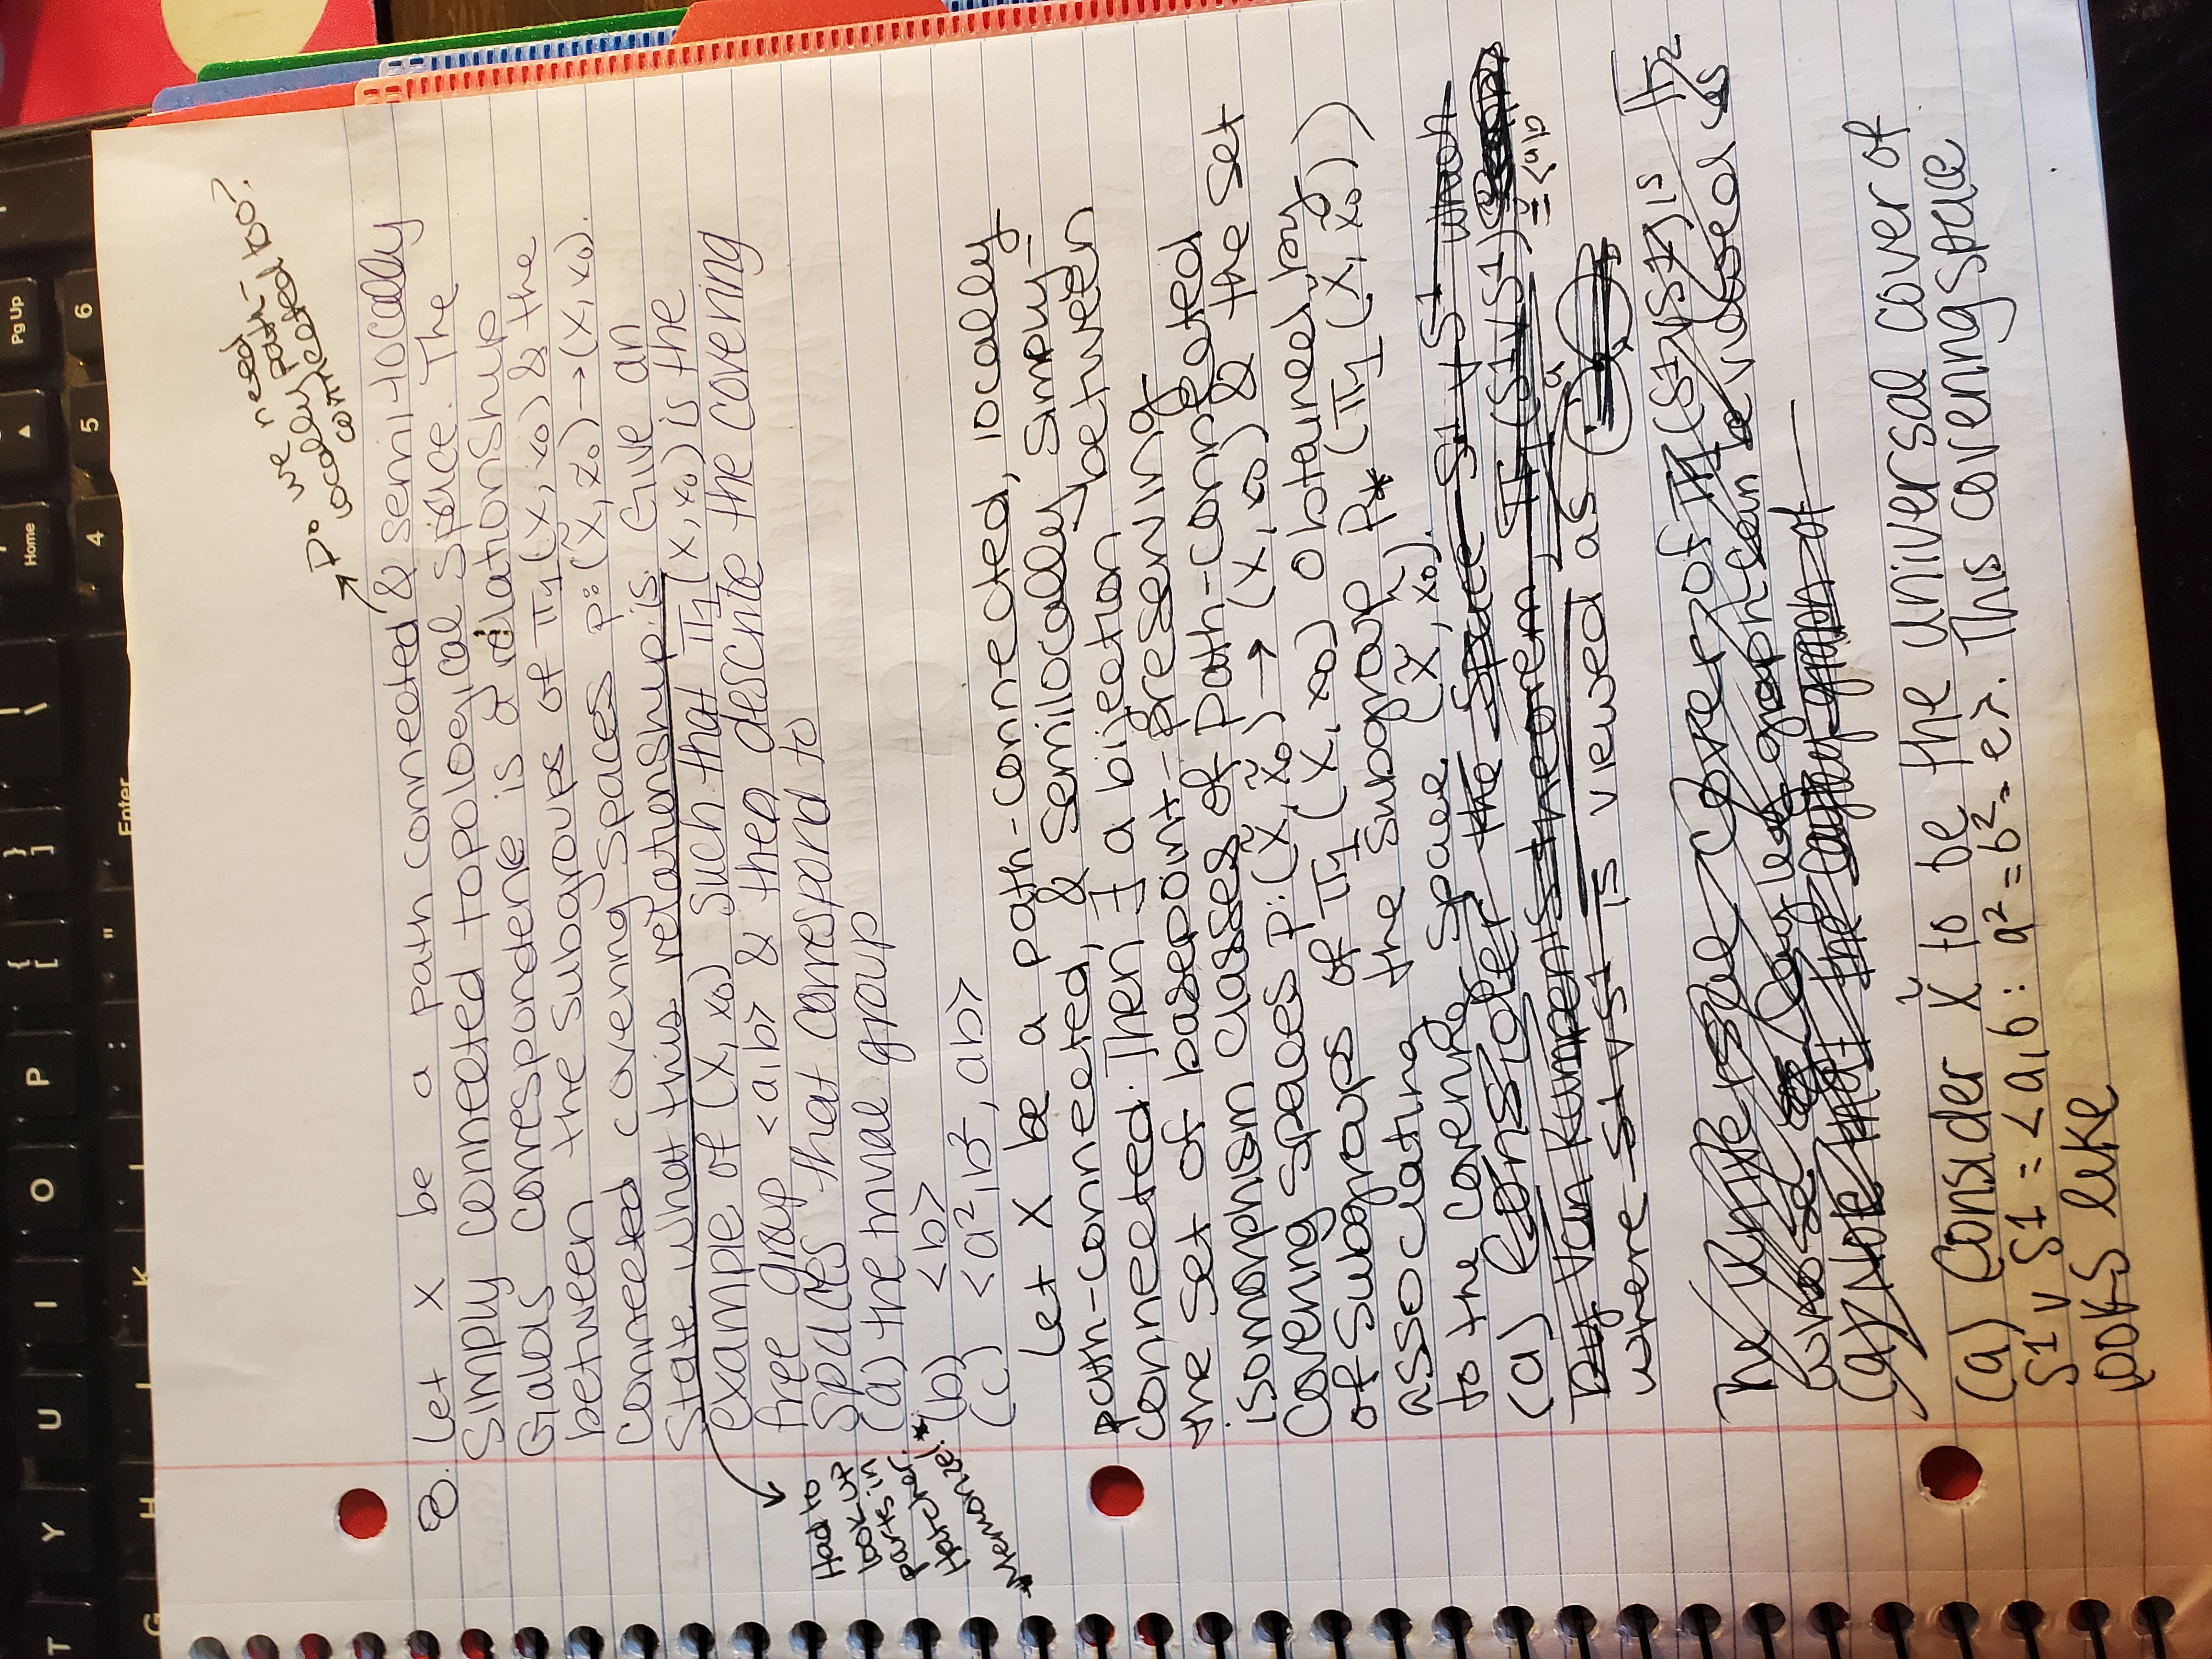 Do we need
locally path-
connected too?
8. Let X be a path connected & semi-locally
simply connected topological space. The
Galois correspondence is a relationship
between the subgroups of π1(X, x0) & the
connected covering spaces p: (X̃, x̃0) → (X, x0).
State what this relationship is. Give an
example of (X, x0) such that π1(X, x0) is the
free group <a,b> & then describe the covering
spaces that correspond to
(a) the trivial group
(b) <b>
(c) <a², b², ab>
Had to
look up
parts in
Hatcher.
*Memorize!*
Let X be a path-connected, locally
path-connected, & semilocally simply-
connected. Then ∃ a bijection between
the set of basepoint-preserving
isomorphism classes of path-connected
covering spaces p: (X̃, x̃0) → (X, x0) & the set
of subgroups of π1(X, x0) obtained by
associating the subgroup p* (π1(X̃, x̃0))
to the covering space (X̃, x̃0).
(a) Consider the space S1 v S1 which
by Van Kampen's theorem, π1(S1 v S1)
≅ <a,b>
where S1 v S1 is viewed as
The universal cover of π1(S1 v S1) is
whose Cayley graph can be viewed as
(a) Note that the Cayley graph of
(a) Consider X̃ to be the universal cover of
S1 v S1 = <a,b: a² = b² = e>. This covering space
looks like
T
Y
U
I
O
P
{
[
}
]
\
G
H
K
L
:
;
"
Enter
Home
PgUp
4
5
6